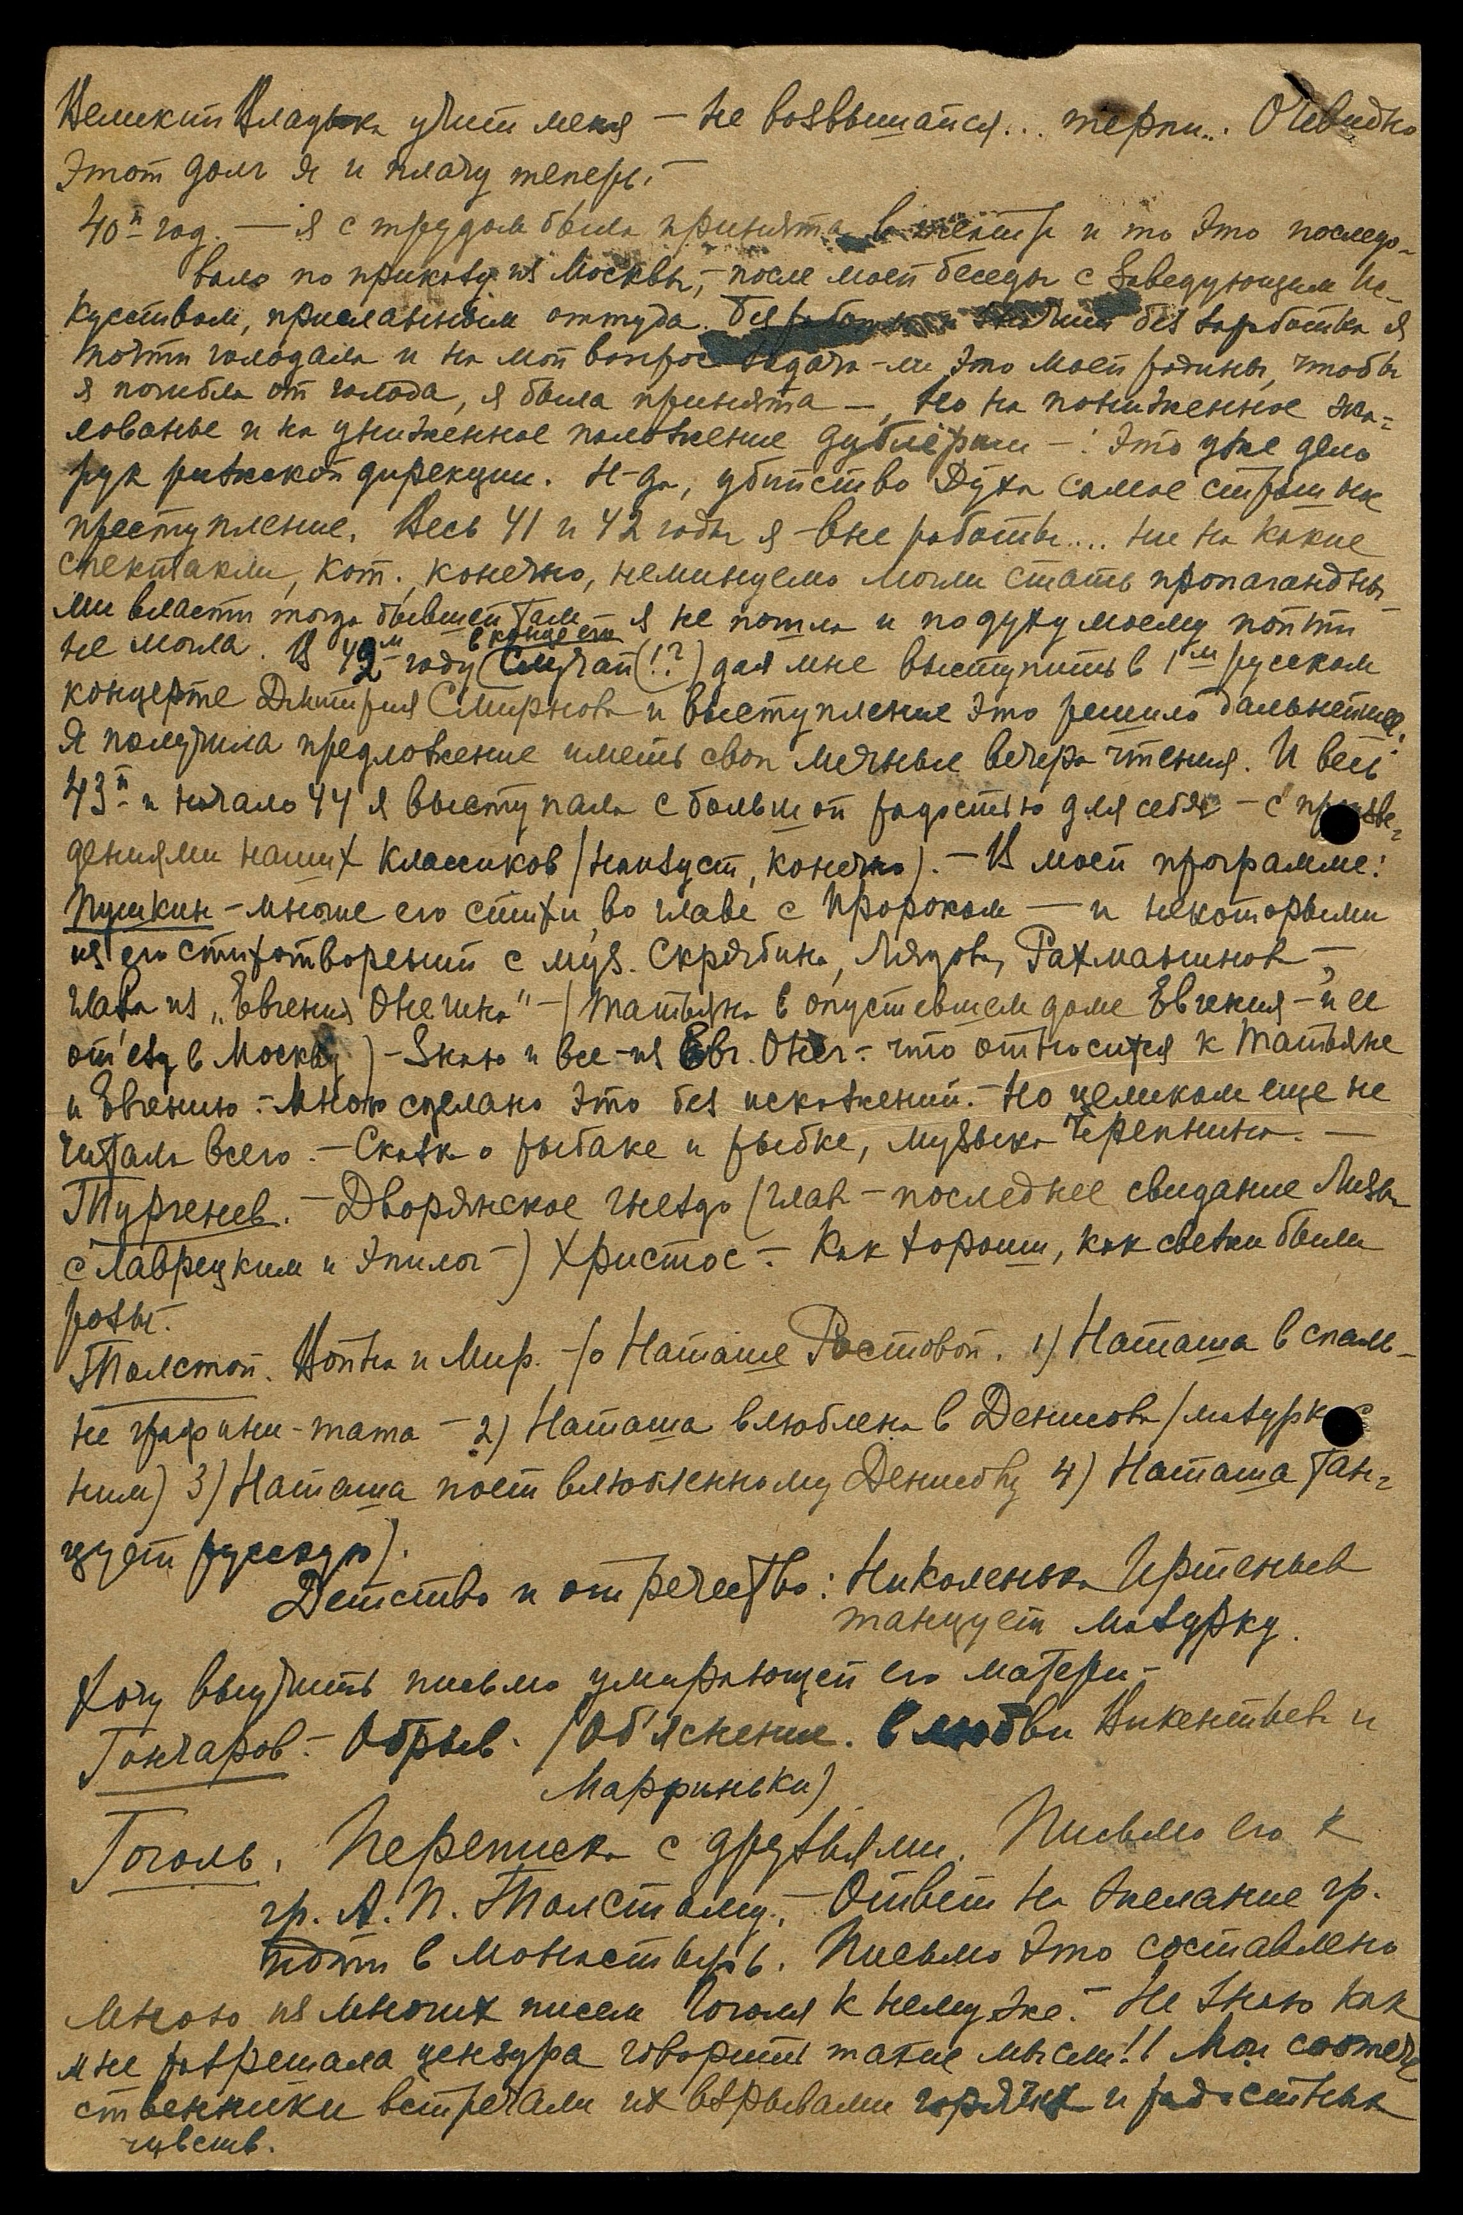 Великий Владыка учит меня — не возвышайся... терпи... Очевидно
этот долг я и плачу теперь. —
40й год. — я с трудом была принята в театр и то это последо-
вало по приказу из Москвы, — после моей беседы с Заведующим Ис-
кусством, присланным оттуда. без заработка я
почти голодала и на мой вопрос задача-ли это моей родины, чтобы
я погибла от голода, я была принята —, но на пониженное жа-
лованье и на униженное положение дублёрши — . Это уже дело
рук рижской дирекции. Н-да, убийство Духа самое страшное
преступление. Весь 41 и 42 годы я — вне работы.... ни на какие
спектакли, кот., конечно, неминуемо могли стать пропагандны-
ми власти тогда бывшей там — я не пошла и по духу моему пойти
не могла. В 42м году (в конце его) случай (!?) дал мне выступить в 1м русском
концерте Дмитрия Смирнова и выступление это решило дальнейшее.
Я получила предложение иметь свои личные вечера чтения. И весь
43й и начало 44 я выступала с большой радостью для себя — с произве-
дениями наших классиков (наизуст, конечно). — В моей программе:
Пушкин — многие его стихи, во главе с Пророком — и некоторыми
из его стихотворений с муз. Скрябина, Лядова, Рахманинова —,
глава из „Евгения Онегина" — (Татьяна в опустевшем доме Евгения — и ее
от'езд в Москву) — Знаю и все — из Евг. Онег. — что относится к Татьяне
и Евгению. — Мною сделано это без искажений. — Но целиком еще не
читала всего. — Сказка о рыбаке и рыбке, музыка Черепнина. —
Тургенев. — Дворянское гнездо (глав — последнее свидание Лизы
с Лаврецким и Эпилог —) Христос — Как хороши, как свежи были
розы. —
Толстой. Война и Мир. — (о Наташе Ростовой. 1) Наташа в спаль-
не графини-мама — 2) Наташа влюблена в Денисова (мазурка с
ним) 3) Наташа поет влюбленному Денисову 4) Наташа тан-
цует русскую).
Детство и отрочество: Николенька Иртеньев
танцует мазурку.
Хочу выучить письмо умирающей его матери —
Гончаров. — Обрыв. (Об'яснение в любви Викентьева и
Марфиньки)
Гоголь. Переписка с друзьями. Письмо его к
гр. А. П. Толстому. — Ответ на желание гр.
пойти в монастырь. Письмо это составлено
мною из многих писем Гоголя к нему же. — Не знаю как
мне разрешала цензура говорить такие мысли!! Мои соотече-
ственники встречали их взрывами горячих и радостных
чувств.